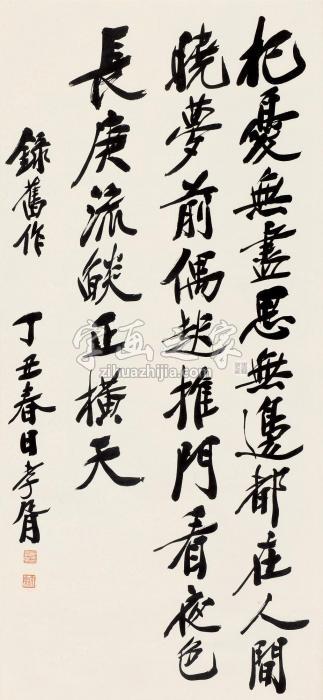 杞憂無盡思無邊都在人間
曉夢前偶起推門看夜色
長庚流燄正橫天
錄舊作
丁丑春日孝胥
字画之家
zihuazhijia.com